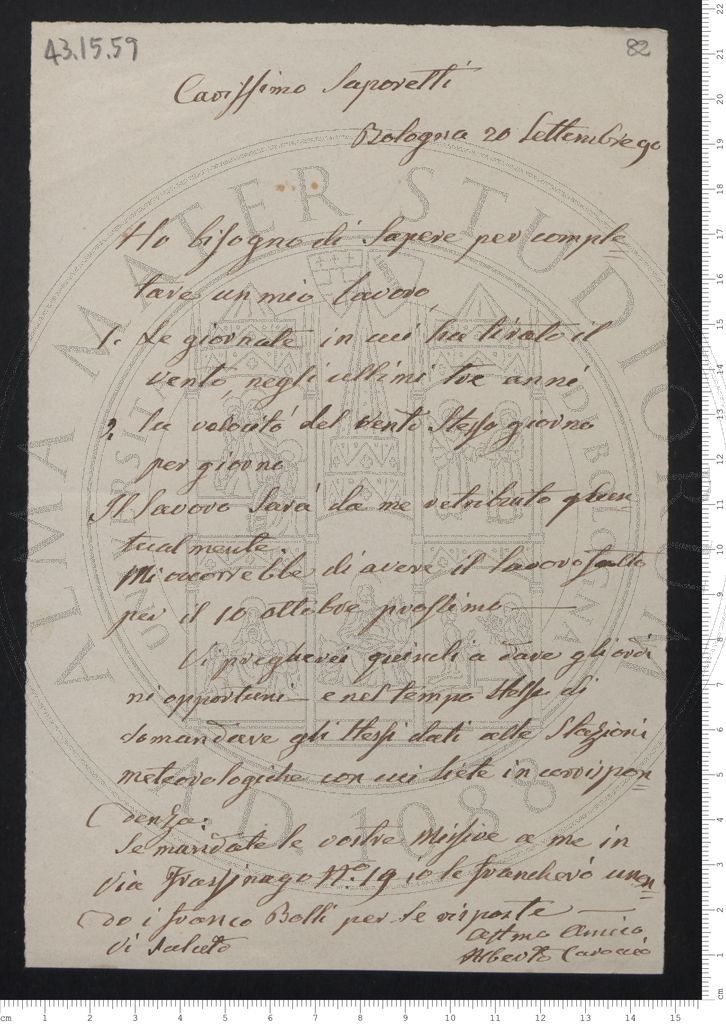 43.15.59
82
Carissimo Saporetti
Bologna 20 Settembre 90
Ho bisogno di sapere per comple=
tare un mio lavoro,
1. Le giornate in cui ha tirato il
vento, negli ultimi tre anni
2. la velocità del vento stesso giorno
per giorno
Il lavoro sarà da me retribuito
tualmente.
Mi occorrebbe di avere il lavoro fatto
per il 10 ottobre prossimo —
Vi pregherei quindi a dare gli ordi
ni opportuni — e nel tempo stesso di
domandare gli stessi dati alle Stazioni
meteorologiche con cui siete in corrispon=
denza.
Se mandate le vostre missive a me in
Via Frassinago Nº 19 io le francherò unen=
do i franco Bolli per le risposte —
Vi saluto
affmo Amico
Alberto
ALMA MATER STUDIORUM
A.D. 1088